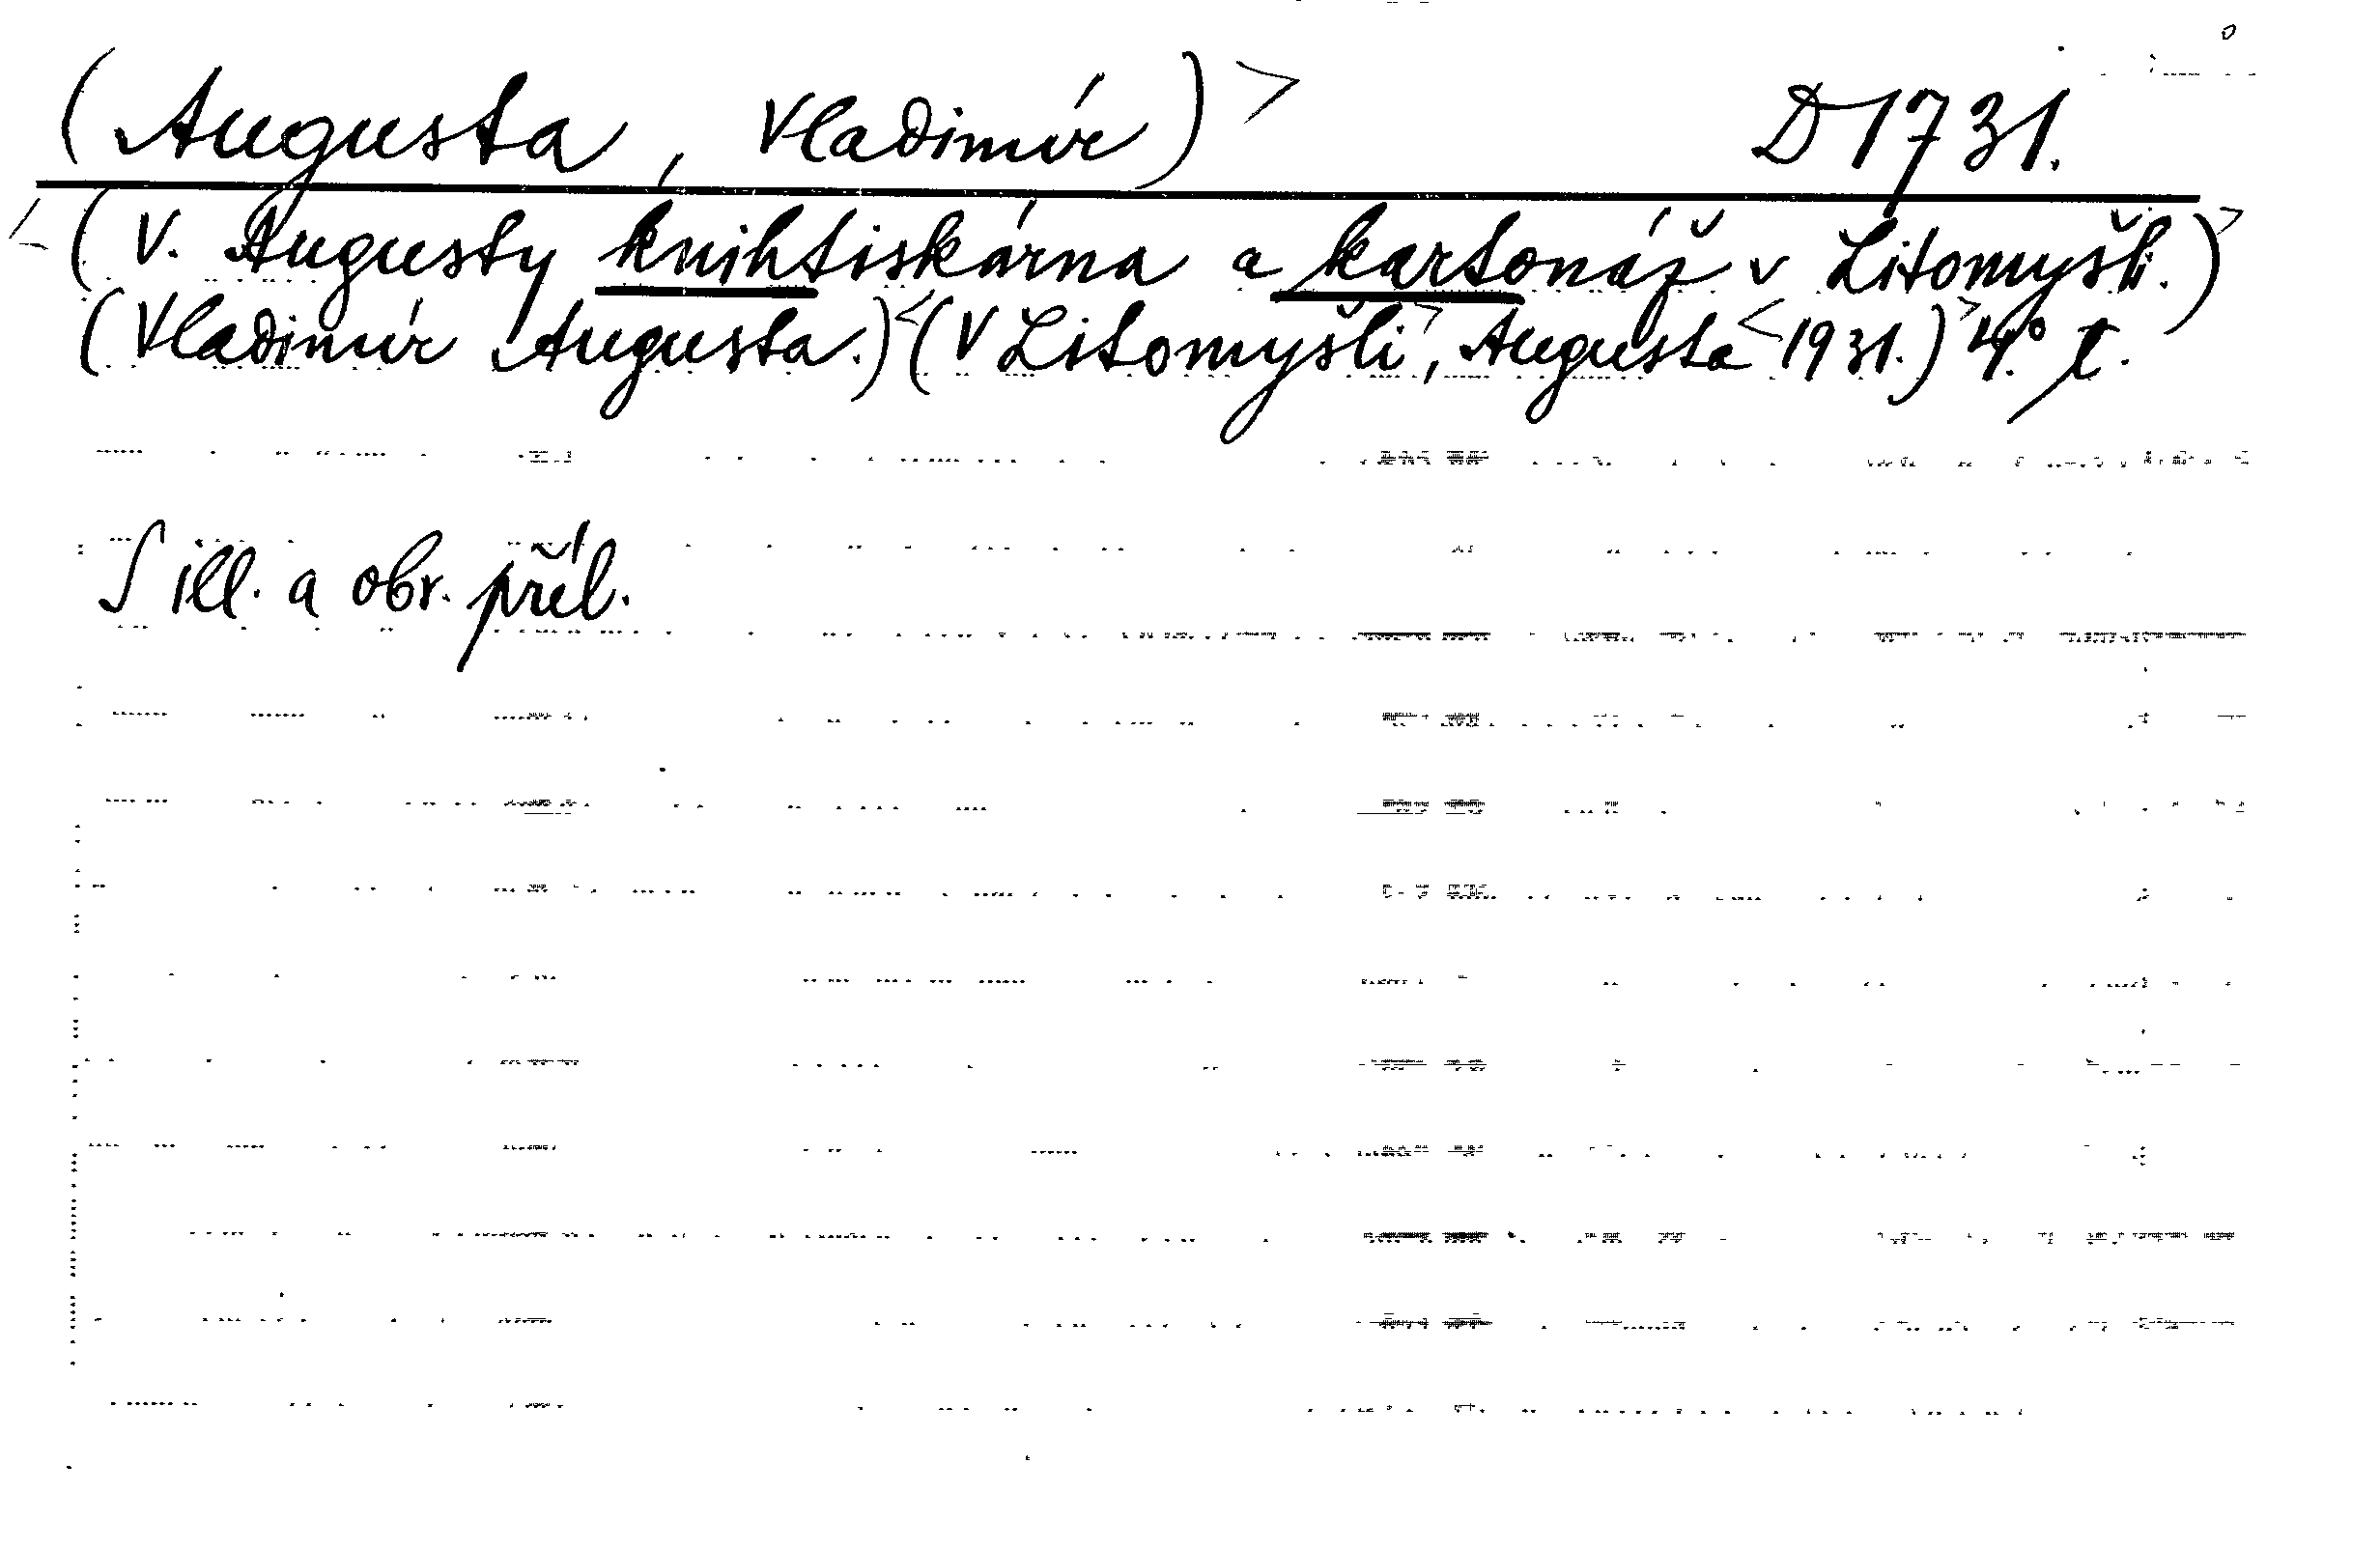 (Augusta, Vladimír)> D 1731.
<(V. Augusty knihtiskárna a kartonáž v Litomyšli.)>
(Vladimír Augusta.)<(V Litomyšli>, Augusta <1931.)> 4.° t.
S ill. a obr. příl.